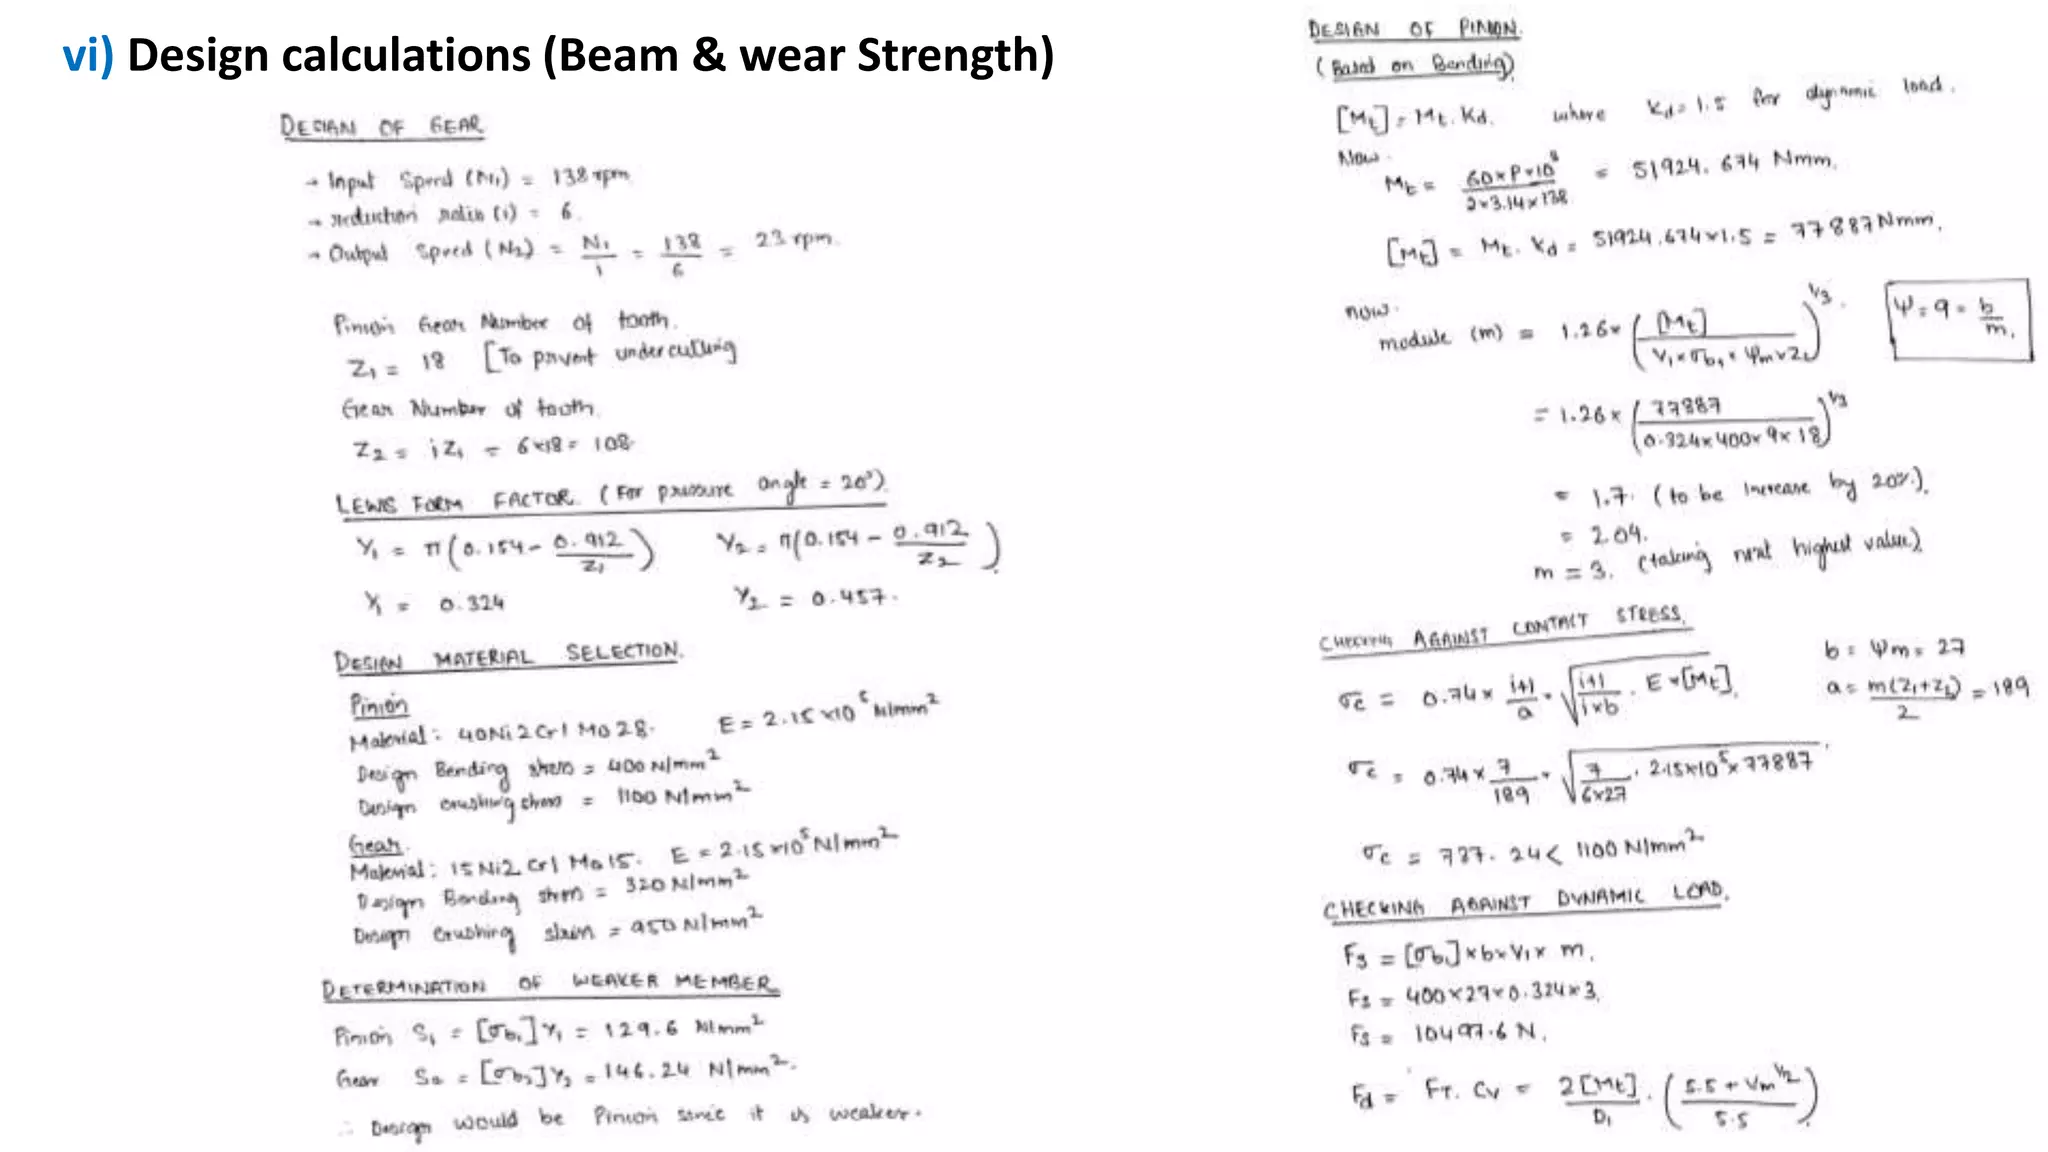 vi) Design calculations (Beam & wear Strength)
DESIGN OF GEAR
→ Input Speed (N1) = 138 rpm
→ reduction ratio (i) = 6.
→ Output Speed (N2) = N1/i = 138/6 = 23 rpm.
Pinion Gear Number of tooth.
Z1 = 18 [To prvent undercutting
Gear Number of tooth.
Z2 = iZ1 = 6×18 = 108
LEWIS FORM FACTOR. (For pressure angle = 20°).
Y1 = π(0.154 - 0.912/Z1) Y2 = π(0.154 - 0.912/Z2)
Y1 = 0.324 Y2 = 0.457.
DESIGN MATERIAL SELECTION.
Pinion
Material: 40Ni2Cr1Mo28. E = 2.15×10^5 N/mm²
Design Bending stress = 400 N/mm²
Design crushing stress = 1100 N/mm²
Gear.
Material: 15Ni2Cr1Mo15. E = 2.15×10^5 N/mm²
Design Bending stress = 320 N/mm²
Design crushing = 950 N/mm²
DETERMINATION OF WEAKER MEMBER
Pinion S1 = [σb1]Y1 = 129.6 N/mm²
Gear = [σb2]Y2 = 146.24 N/mm².
∴ Design would be Pinion since it is weaker.
DESIGN OF PINION.
(Based on Bending)
[Mt] = Mt. Kd. where Kd = 1.5 for dynamic load.
Now.
Mt = 60×P×10^8/2×3.14×138 = 51924.674 Nmm.
[Mt] = Mt. Kd = 51924.674×1.5 = 77887 Nmm.
now.
module (m) = 1.26×([Mt]/Y1×σb1×Ψm×Z1)^1/3. Ψ = 9 = b/m.
= 1.26×(77887/0.324×400×9×18)^1/3
= 1.7. (to be increase by 20%).
= 2.04.
m = 3. (taking next highest value).
CHECKING AGAINST CONTACT STRESS.
b = Ψm = 27
σc = 0.74× i+1/a × √(i+1/i×b . E×[Mt]). a = m(Z1+Z2)/2 = 189
σc = 0.74× 7/189 × √(7/6×27 . 2.15×10^5×77887).
σc = 737.24 < 1100 N/mm²
CHECKING AGAINST DYNAMIC LOAD.
Fs = [σb1]×b×Y1×m.
Fs = 400×27×0.324×3.
Fs = 10497.6 N.
Fd = FT. CV = 2[Mt]/D1 . (5.5 + Vm^1/2/5.5).